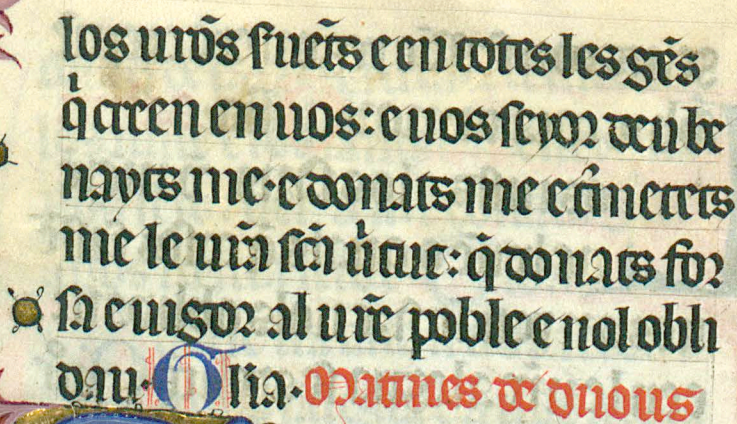 los urōs sueṙs e en totes les gēs
q̇ creen en uos: e uos senyor deu be
nayts me. e donats me e tmetets
me le urā sc̄a ūtut: q̄ donats for
sa e uigor al urē poble e nol obli
dau. Glīa. Matines de diious